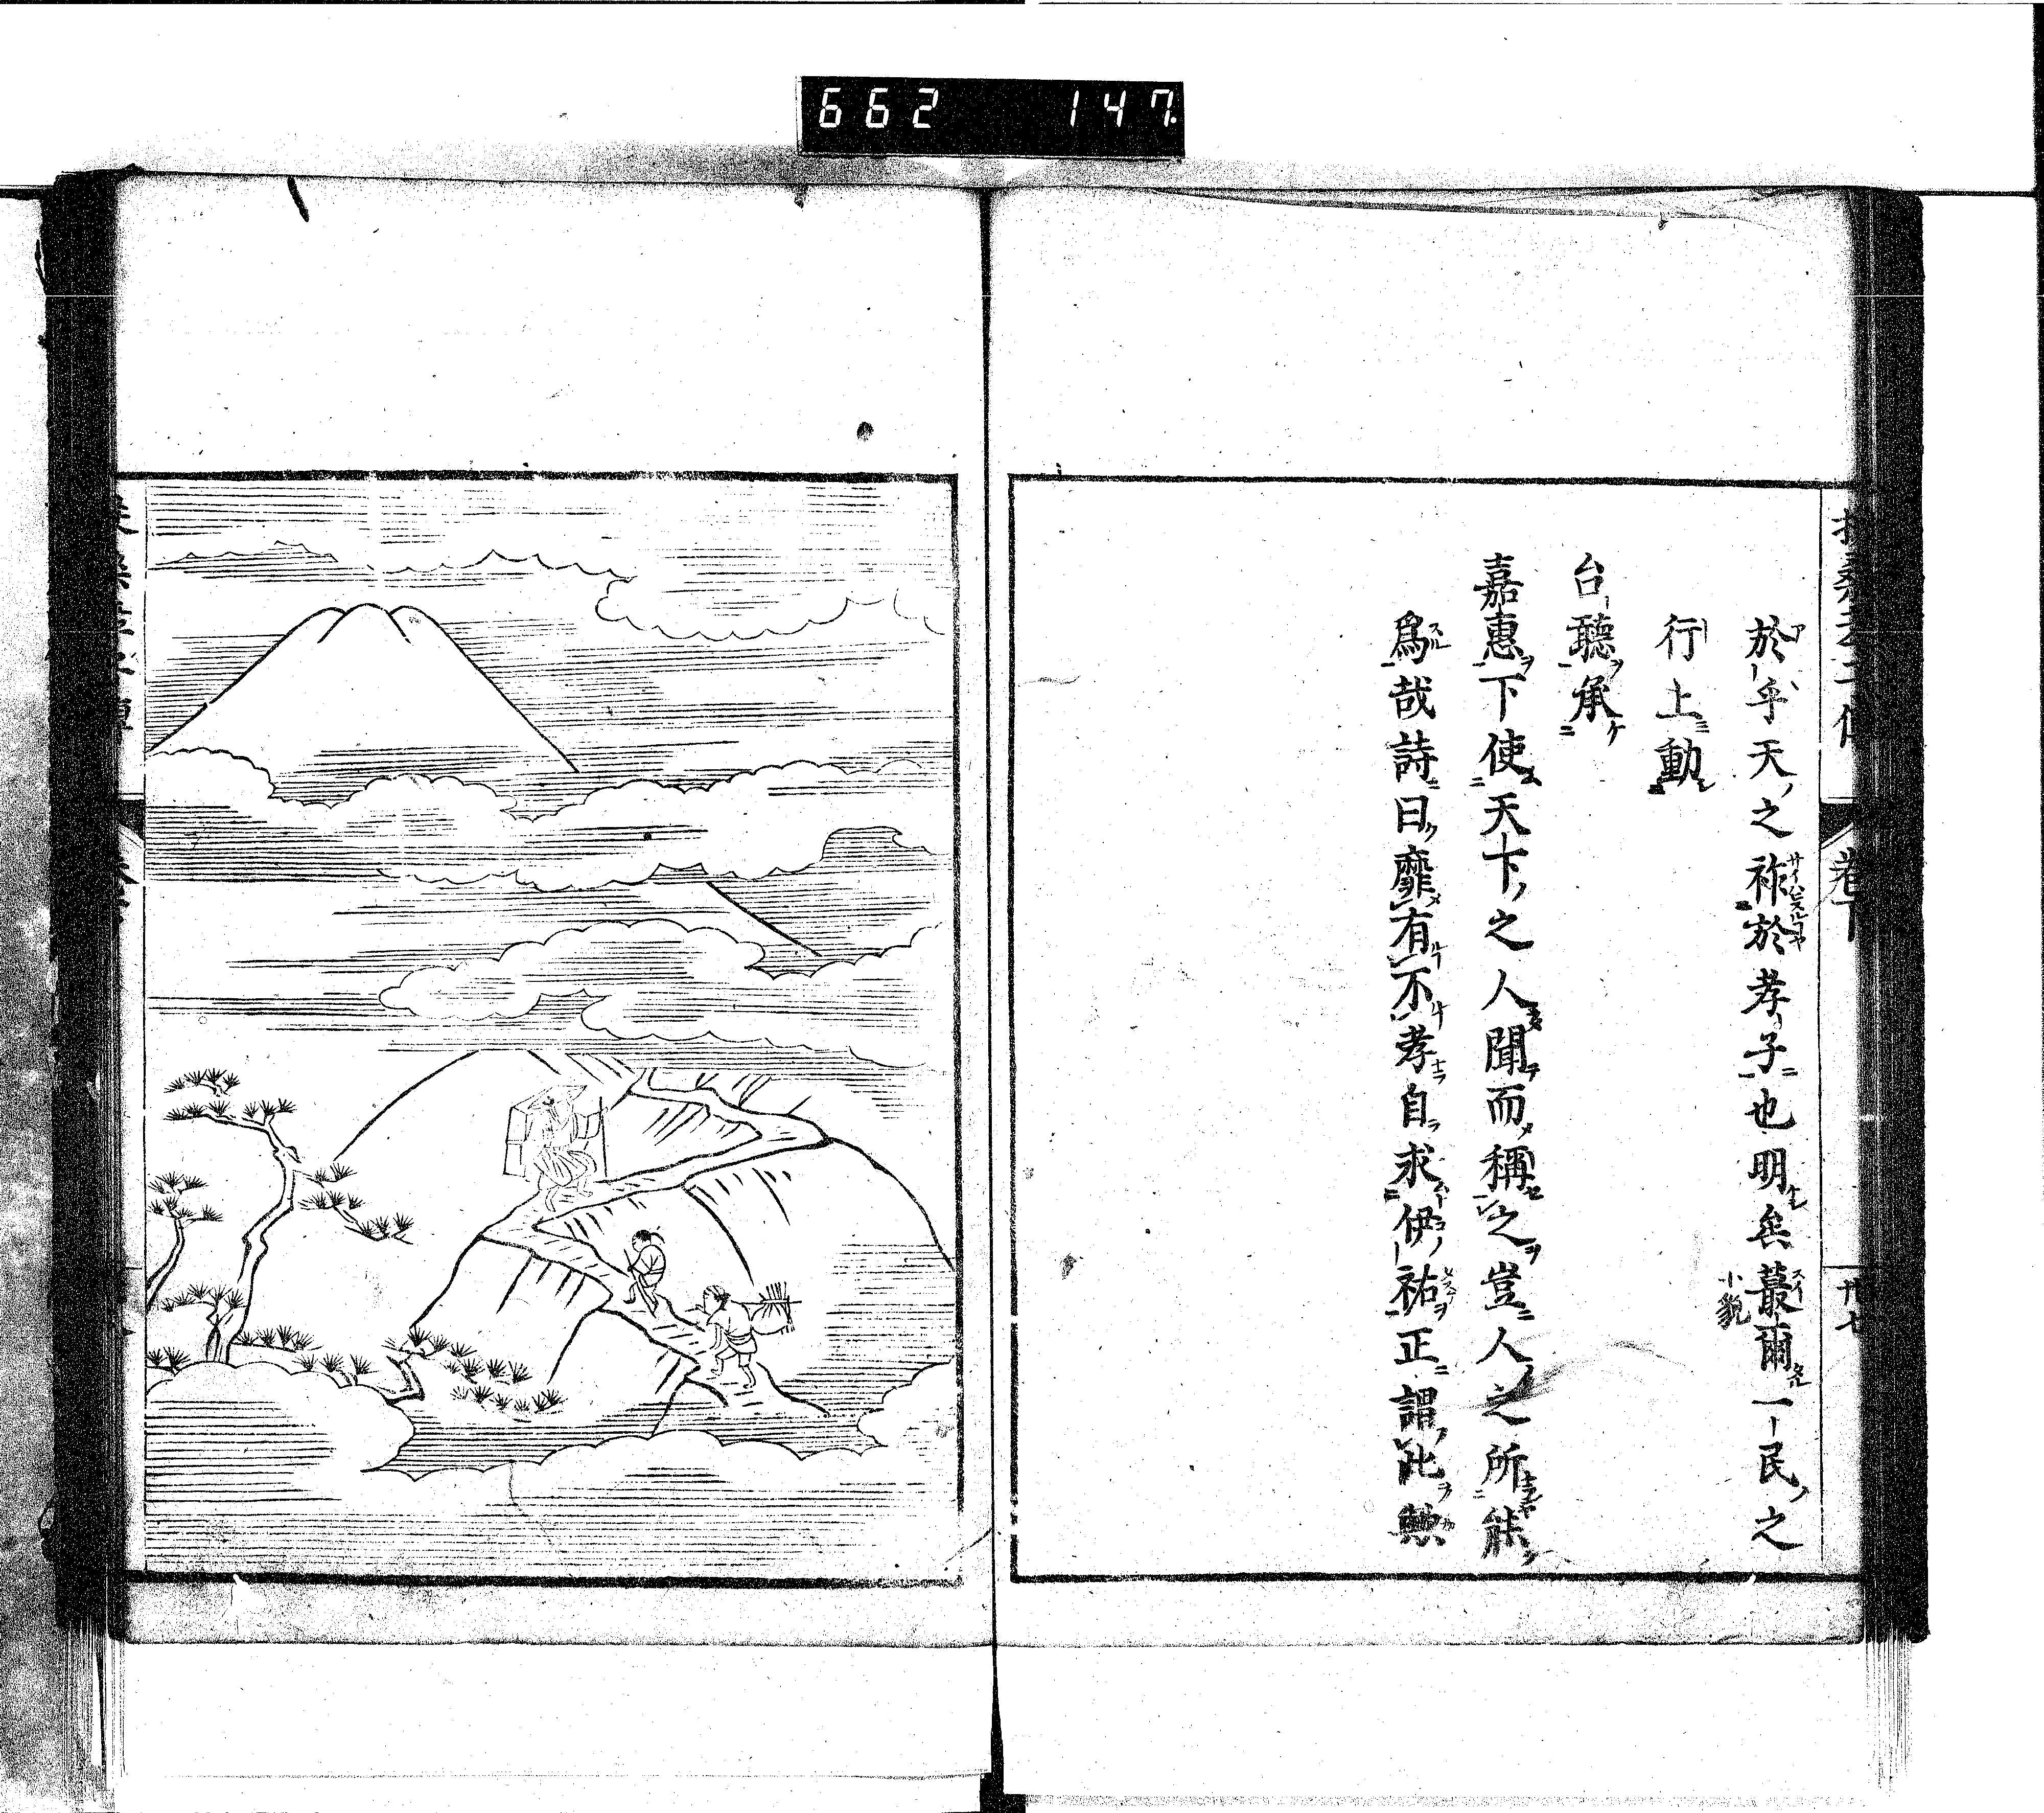 662 147
於乎天之祚於孝子也明矣蕞爾一民之
小貌
行上動
台聽承
嘉惠下使天下之人聞而稱之豈人之所能
爲哉詩曰靡有不孝自求伊祜正謂此歟
卷下
卅七